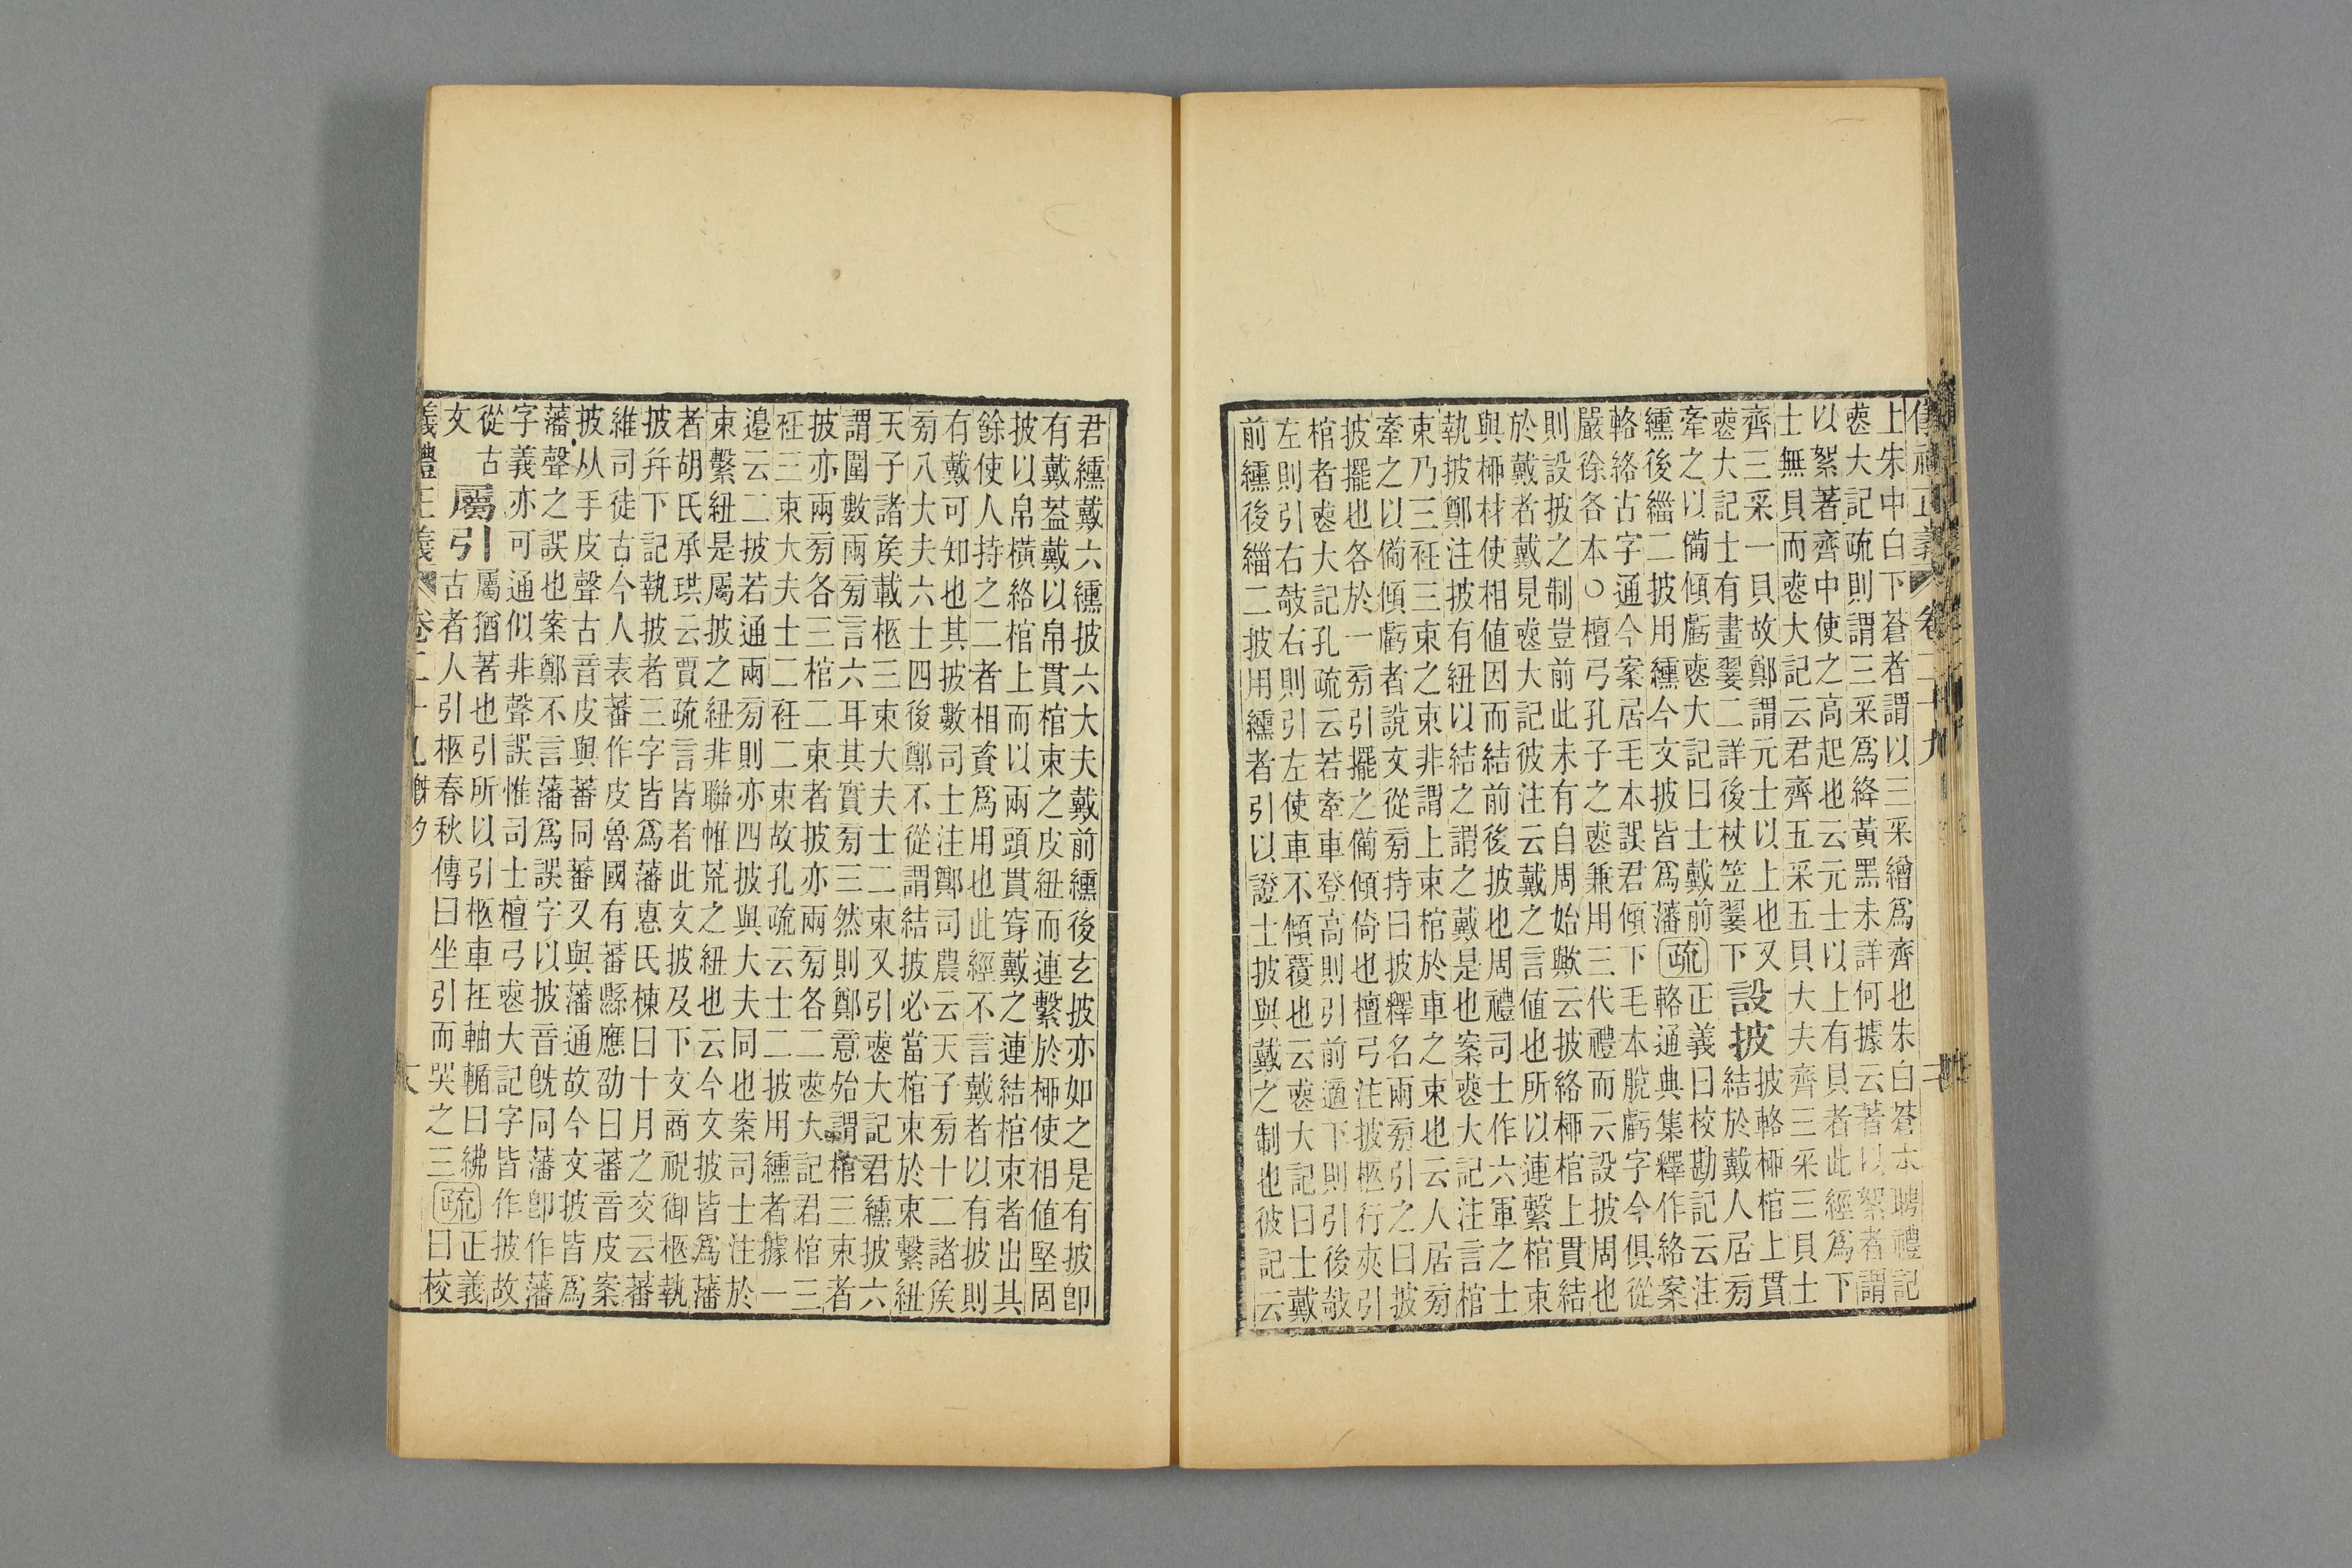 上朱中白下蒼者謂以三采繒爲齊也朱白蒼本聘禮記
䘮大記疏則謂三采爲絳黃黑未詳何據云著以絮者謂
以絮著齊中使之高起也云元士以上有貝者此經爲下
士無貝而䘮大記云君齊五采五貝大夫齊三采三貝士
齊三采一貝故鄭謂元士以上也又
䘮大記士有畫翣二詳後杖笠翣下
設披
披輅栁棺上貫
結於戴人居㫄
牽之以備傾虧䘮大記曰士戴前
纁後緇二披用纁今文披皆爲藩
疏
正義曰校勘記云注
輅通典集釋作絡案
輅絡古字通今案居毛本誤君傾下毛本脫虧字今俱從
嚴徐各本○檀弓孔子之䘮兼用三代禮而云設披周也
則設披之制豈前此未有自周始歟云披絡栁棺上貫結
於戴者戴見䘮大記彼注云戴之言値也所以連繫棺束
與栁材使相値因而結前後披也周禮司士作六軍之士
執披鄭注披有紐以結之謂之戴是也案䘮大記注言棺
束乃三衽三束之束非謂上束棺於車之束也云人居㫄
牽之以備傾虧者說文從㫄持曰披釋名兩㫄引之曰披
披擺也各於一㫄引擺之備傾倚也檀弓注披柩行夾引
棺者䘮大記孔疏云若牽車登高則引前適下則引後欹
左則引右欹右則引左使車不傾覆也云䘮大記曰士戴
前纁後緇二披用纁者引以證士披與戴之制也彼記云
君纁戴六纁披六大夫戴前纁後玄披亦如之是有披卽
有戴葢戴以帛貫棺束之皮紐而連繫於栁使相値堅固
披以帛橫絡棺上而以兩頭貫穿戴之連結棺束者出其
餘使人持之二者相資爲用也此經不言戴者以有披則
有戴可知也其披數司士注鄭司農云天子㫄十二諸矦
㫄八大夫六士四後鄭不從謂結披必當棺束於束繫紐
天子諸矦載柩三束大夫士二束又引䘮大記君纁披六
謂圍數兩㫄言六耳其實㫄三然則鄭意殆謂棺三束者
披亦兩㫄各三棺二束者披亦兩㫄各二䘮大記君棺三
衽三束大夫士二衽二束故孔疏云士二披用纁者據一
邉云二披若通兩㫄則亦四披與大夫同也案司士注於
束繫紐是屬披之紐非聯帷荒之紐也云今文披皆爲藩
者胡氏承珙云賈疏言皆者此文披及下文商祝御柩執
披幷下記執披者三字皆爲藩惠氏棟曰十月之交云蕃
維司徒古今人表蕃作皮魯國有蕃縣應劭曰蕃音皮案
披从手皮聲古音皮與蕃同蕃又與藩通故今文披皆爲
藩聲之誤也案鄭不言藩爲誤字以披音旣同藩卽作藩
字義亦可通似非聲誤惟司士檀弓䘮大記字皆作披故
從古
文
屬引
屬猶著也引所以引柩車在軸輴曰紼
古者人引柩春秋傳曰坐引而哭之三
疏
正義
曰校